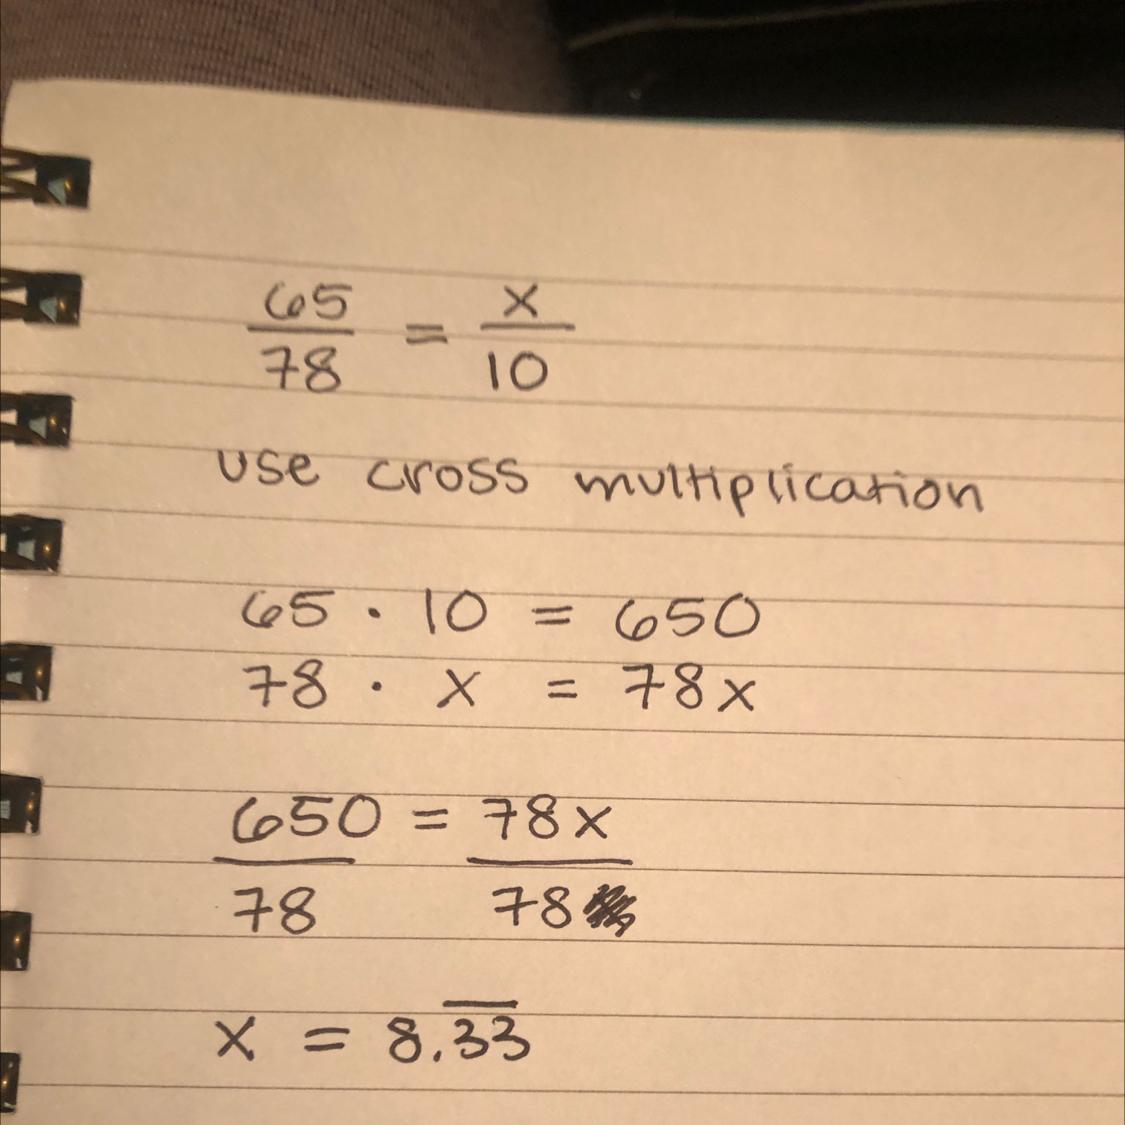 65/78 = x/10
use cross multiplication
65 · 10 = 650
78 · x = 78x
650/78 = 78x/78
x = 8.3̅3̅